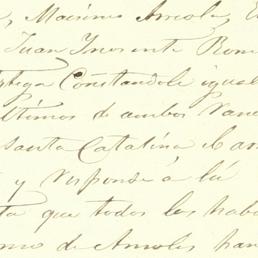 , Máximo Arriola, E
Juan Inosente Rom
Ortega Constandole igual
últimos de ambos vand
Santa Catalina el an
y responde á lá
ta que todos los habi
como de Amoles han